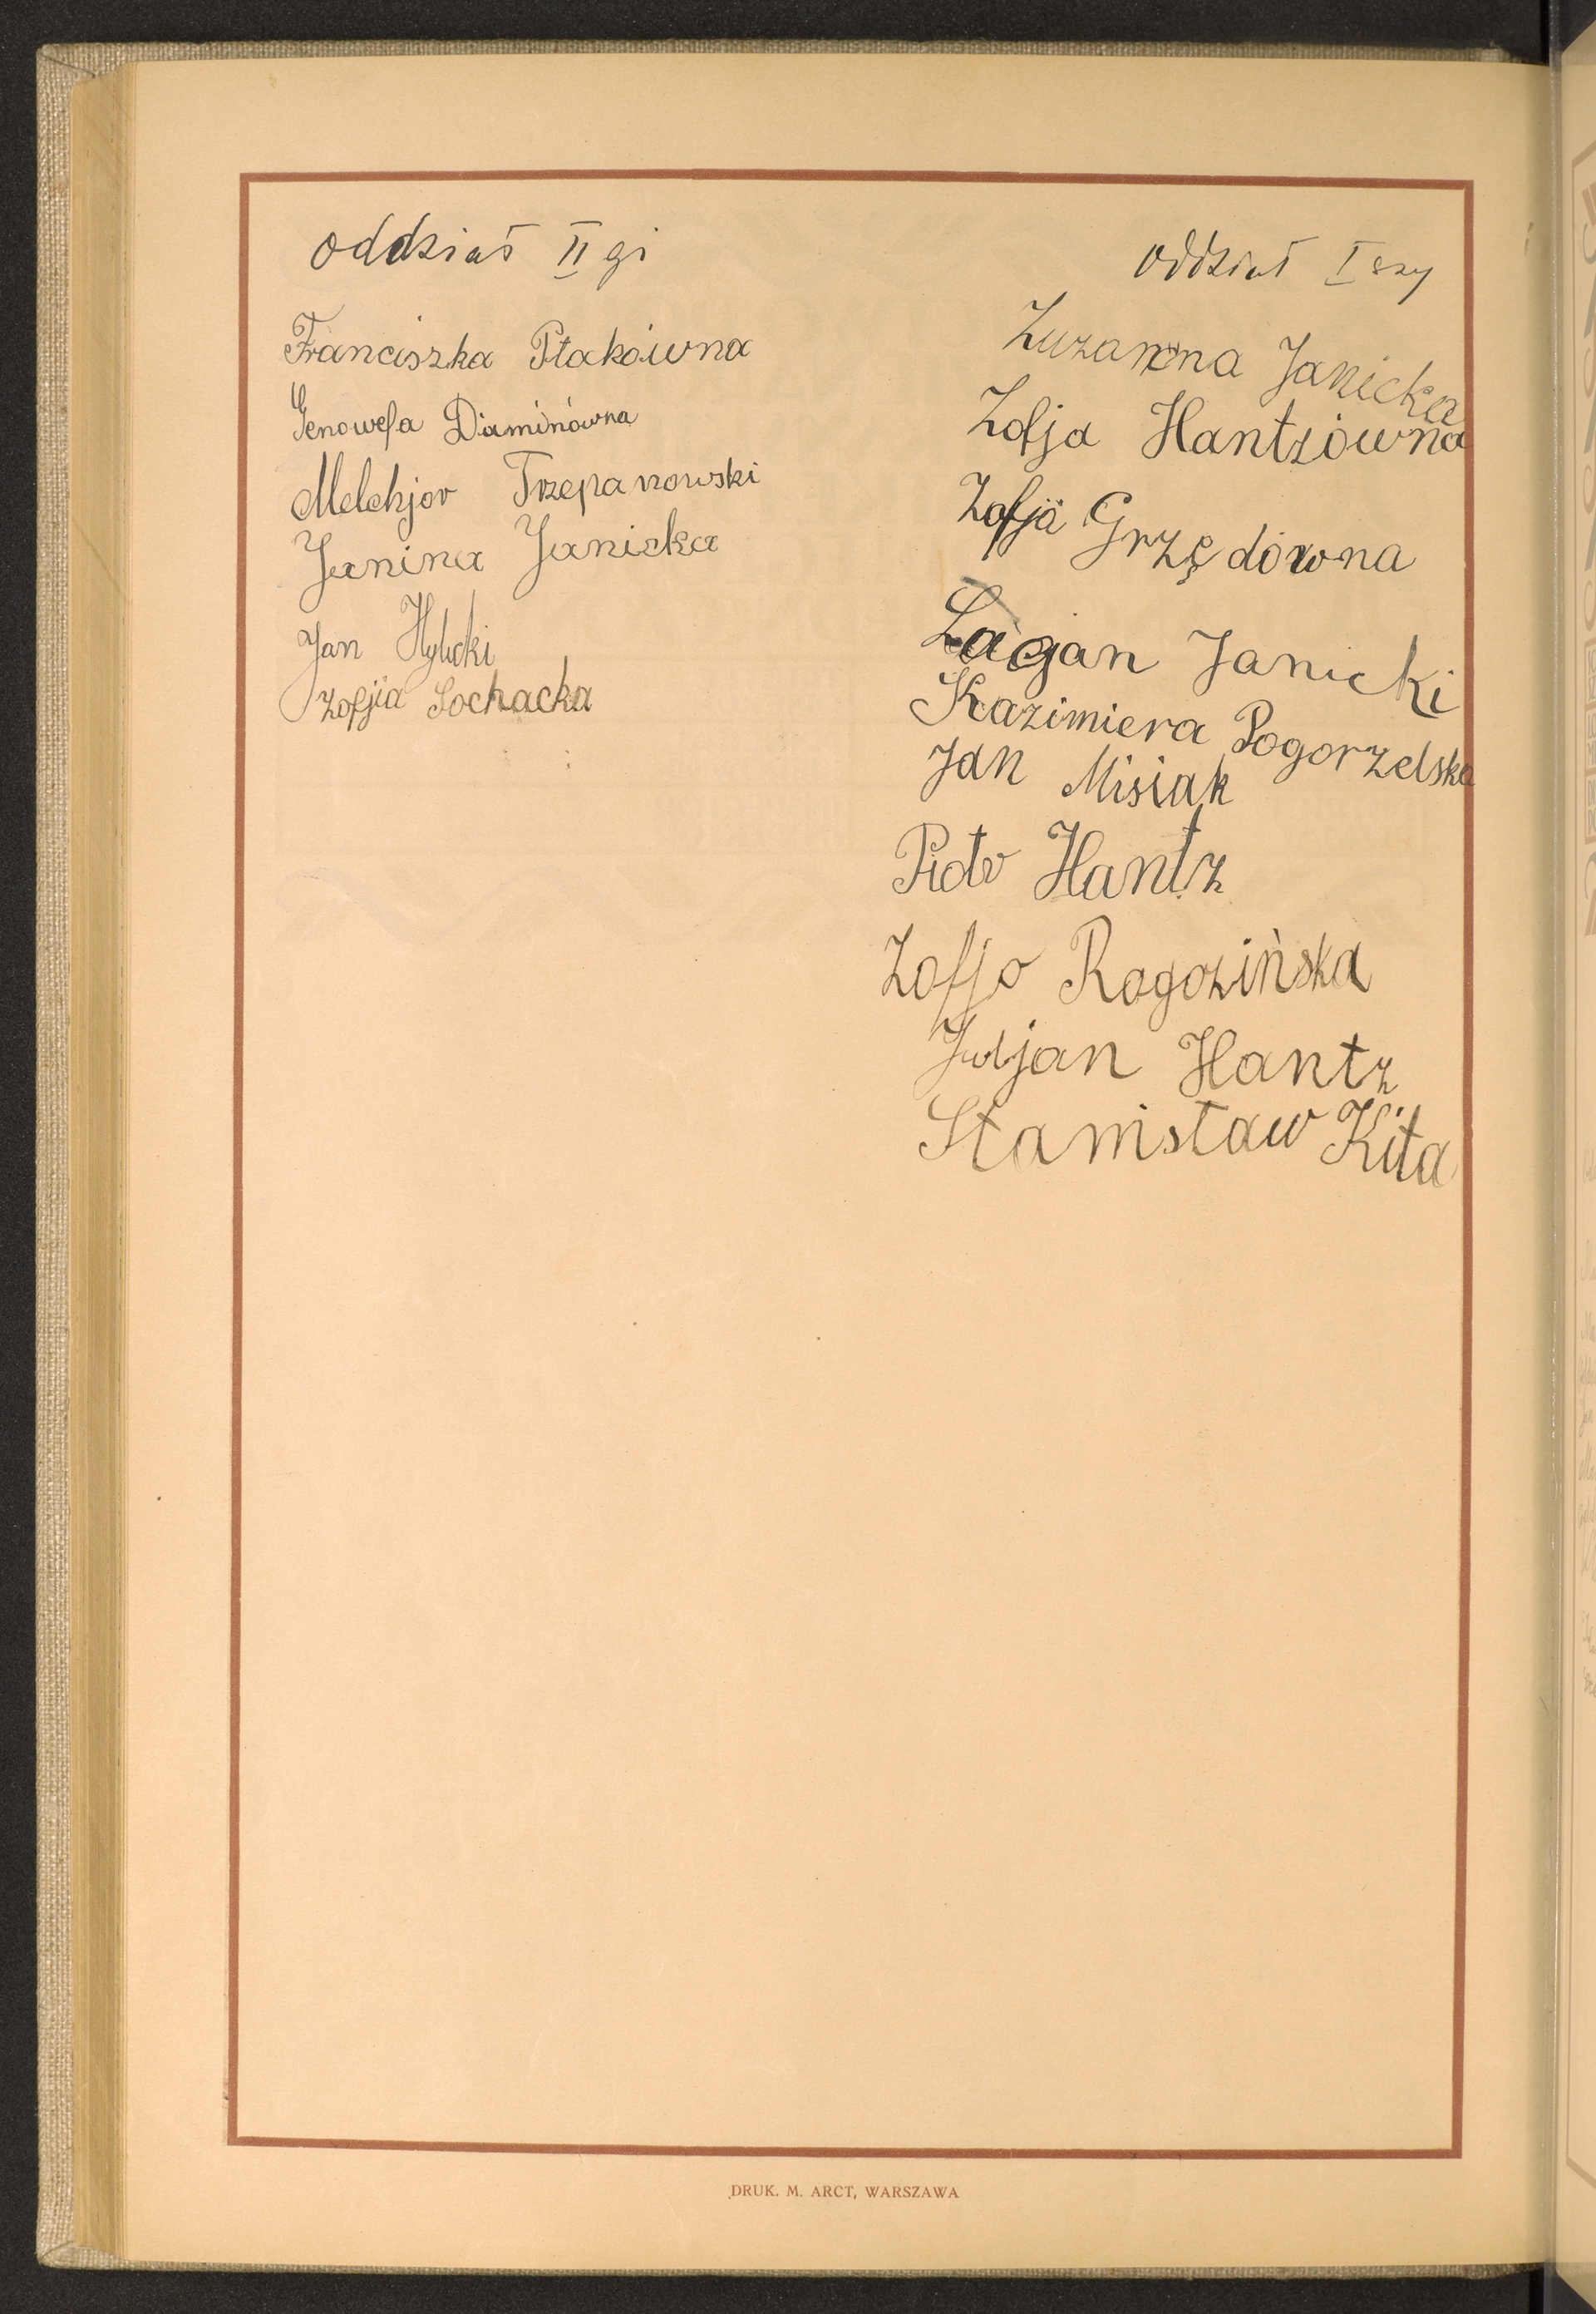 Oddział II gi
Franciszka Ptakówna
Genowefa Diaminówna
Melchjor Trzepanowski
Janina Janicka
Jan
Zofjia Sochacka
Oddział I szy
Zuzanna Janicka
Zofja Hantzówna
Zofja Grzędówna
Janicki
Kazimiera Pogorzelska
Jan Misiak
Piotr Hantz
Zofja Rogozińska
Juljan Hantz
Stanisław Kita
DRUK. M. ARCT, WARSZAWA